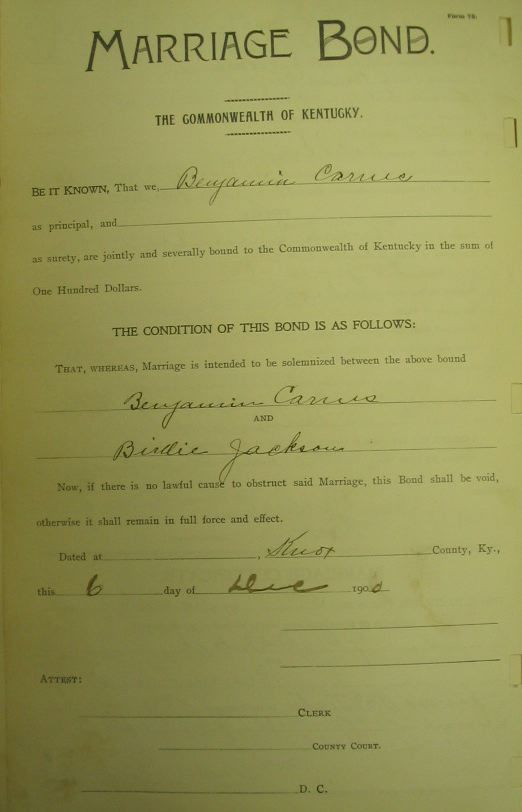 Form 78.
MARRIAGE BOND.
THE COMMONWEALTH OF KENTUCKY.
BE IT KNOWN, That we, Benjamin Carnes
as principal, and
as surety, are jointly and severally bound to the Commonwealth of Kentucky in the sum of
One Hundred Dollars.
THE CONDITION OF THIS BOND IS AS FOLLOWS:
THAT, WHEREAS, Marriage is intended to be solemnized between the above bound
Benjamin Carnes
AND
Birdie Jackson
Now, if there is no lawful cause to obstruct said Marriage, this Bond shall be void,
otherwise it shall remain in full force and effect.
Dated at , Knox County, Ky.,
this 6 day of Dec 190
ATTEST:
CLERK
COUNTY COURT.
D. C.